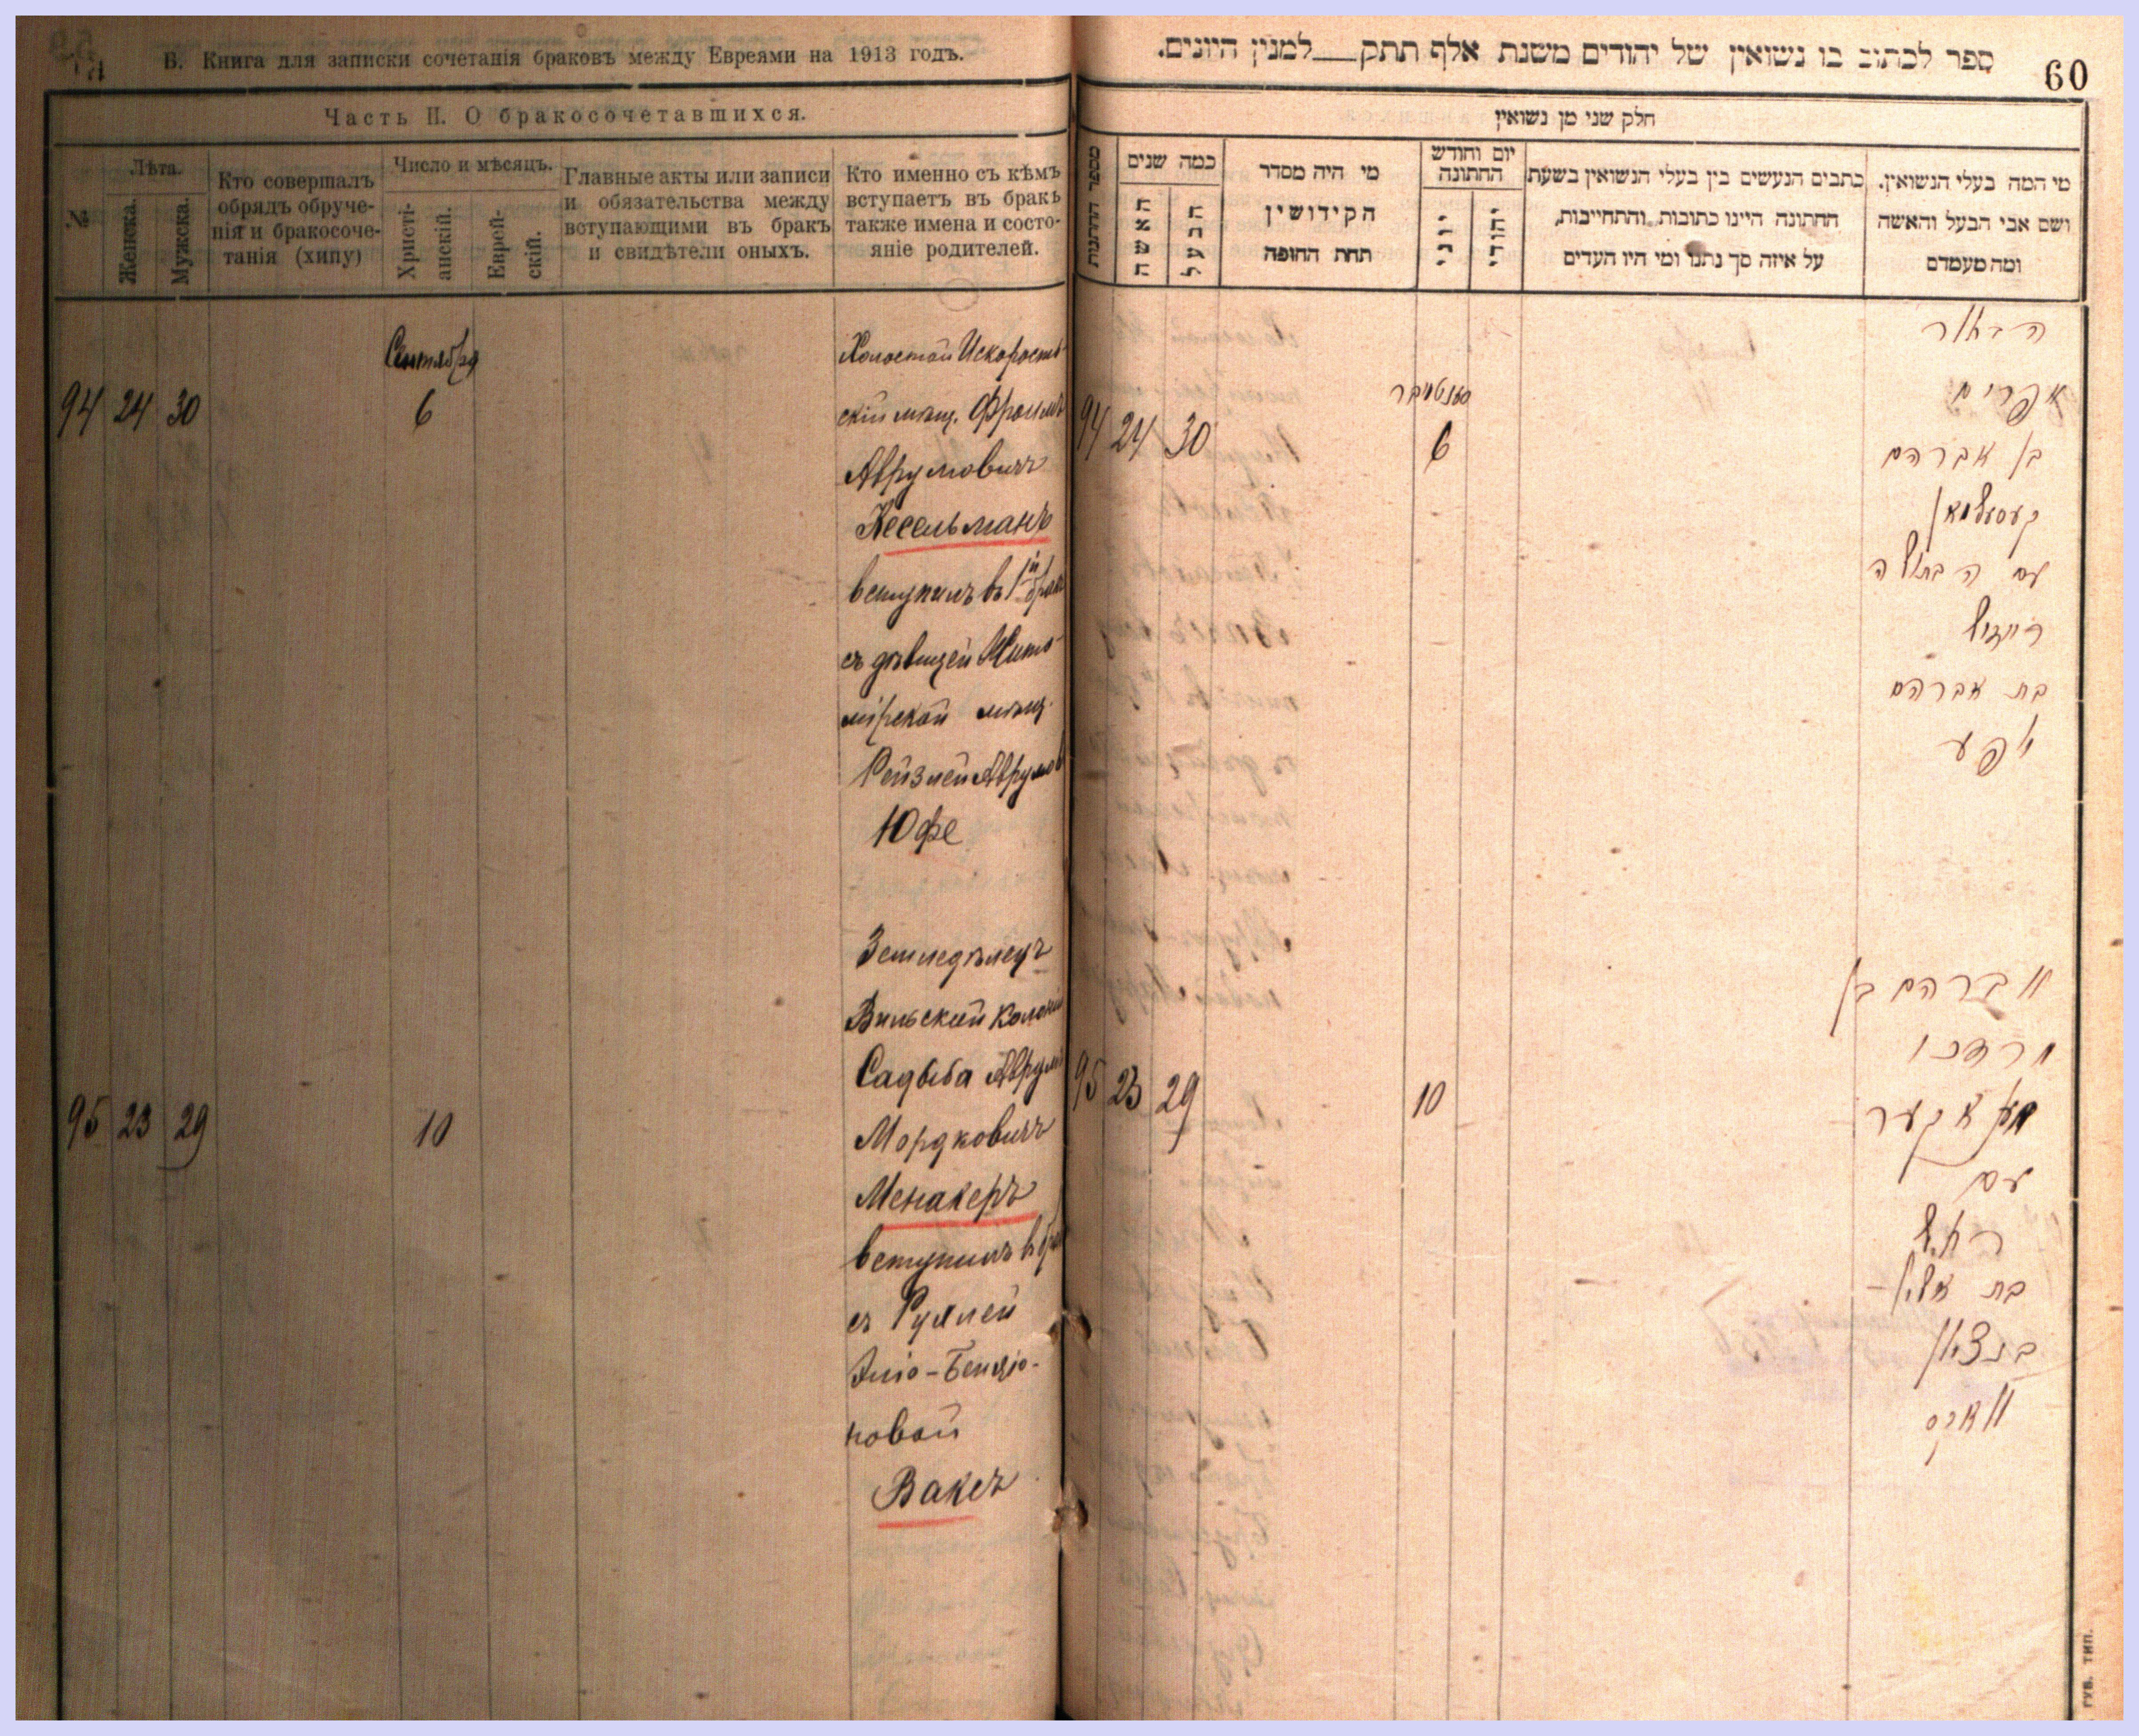 Б. Книга для записки сочетанія браковъ между Евреями на 1913 годъ.
Часть II. О бракосочетавшихся.
№
Лѣта.
Женска.
Мужска.
Кто совершалъ
обрядъ обруче-
нія и бракосоче-
танія (хипу)
Число и мѣсяцъ.
Христі-
анскій.
Еврей-
скій.
Главные акты или записи
и обязательства между
вступающими въ бракъ
и свидѣтели оныхъ.
Кто именно съ кѣмъ
вступаетъ въ бракъ
также имена и состо-
яніе родителей.
Сентября
94 24 30 6
Холостой Искорост-
скій мѣщ. Фроимъ
Аврумовичъ
Кесельманъ
вступилъ въ 1й бракъ
съ дѣвицей Жито-
мірской мѣщ.
Рейзлей Аврумов
Юфе
95 23 29 10
Земледѣлецъ
Вильской колоніи
Садыба Аврумъ
Мордковичъ
Менакеръ
вступилъ въ бра
съ Рухлей
Эліо-Бенціо-
новой
Ваксъ
ספר לכתוב בו נשואין של יהודים משנת אלף תתק למנין היונים.
60
חלק שני מן נשואין
מי המה בעלי הנשואין.
ושם אבי הבעל והאשה
ומה מעמדם
כתבים הנעשים בין בעלי הנשואין בשעת
החתונה היינו כתובות והתחייבות,
על איזה סך נתנו ומי היו העדים
יום וחודש
החתונה
יהודי
יוני
מי היה מסדר
הקידושין
תחת החופה
כמה שנים
הבעל
האשה
מספר החתונות
סענטיבר
94 24 30 6
הבחור
אפרים
בן אברהם
קעסעלמאן
עם הבתולה
רייזיל
בת אברהם
יפע
95 23 29 10
אברהם בן
מרדכי
מענאקער
עם
רחל
בת אלי׳
בנציון
וואקס
ГУБ. ТИП.